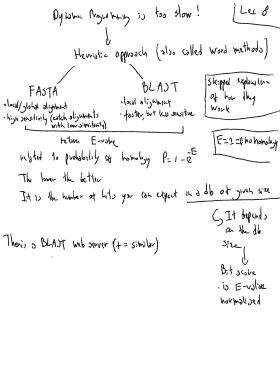 Dynamic Programming is too slow!
Lec 8
Heuristic approach (also called word methods)
FASTA
• local/global alignment
• high sensitivity (catch alignments
with low similarity)
BLAST
• local alignment
• faster, but less sensitive
skipped explanation
of how they
work
return E-value
related to probability of homology P = 1 - e^-E
E=1 => no homology
The lower the better
It is the number of hits you can expect on a db of given size
It depends
on the db
size
There is a BLAST web server (+ = similar)
Bit score
is E-value
normalized